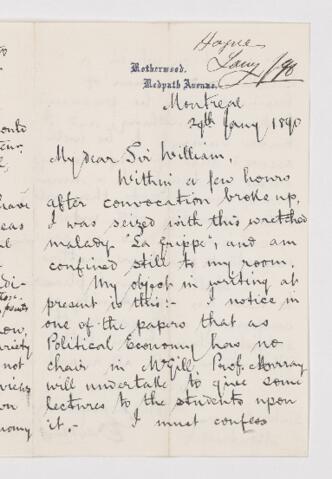 Hague
Jany /90
Rotherwood,
Redpath Avenue.
Montreal
29th Jany 1890
My dear Sir William,
Within a few hours
after convocation broke up,
I was seized with this wretched
malady "La Grippe", and am
confined still to my room.
My object in writing at
present is this:- I notice in
one of the papers that as
Political Economy has no
chair in McGill, Prof. Murray
will undertake to give some
lectures to the students upon
it.- I must confess